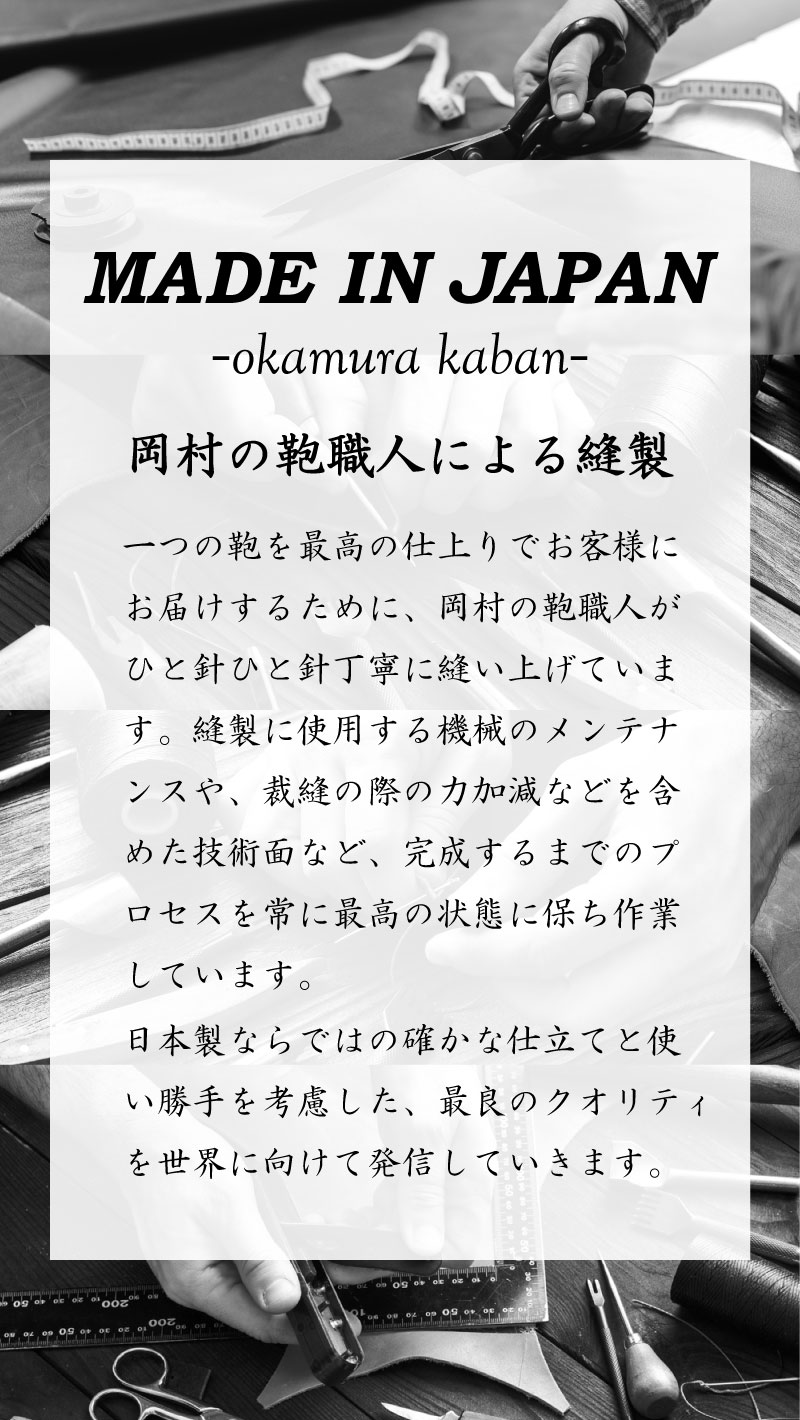 MADE IN JAPAN
-okamura kaban-
岡村の鞄職人による縫製
一つの鞄を最高の仕上りでお客様に
お届けするために、岡村の鞄職人が
ひと針ひと針丁寧に縫い上げていま
す。縫製に使用する機械のメンテナ
ンスや、裁縫の際の力加減などを含
めた技術面など、完成するまでのプ
ロセスを常に最高の状態に保ち作業
しています。
日本製ならではの確かな仕立てと使
い勝手を考慮した、最良のクオリティ
を世界に向けて発信していきます。